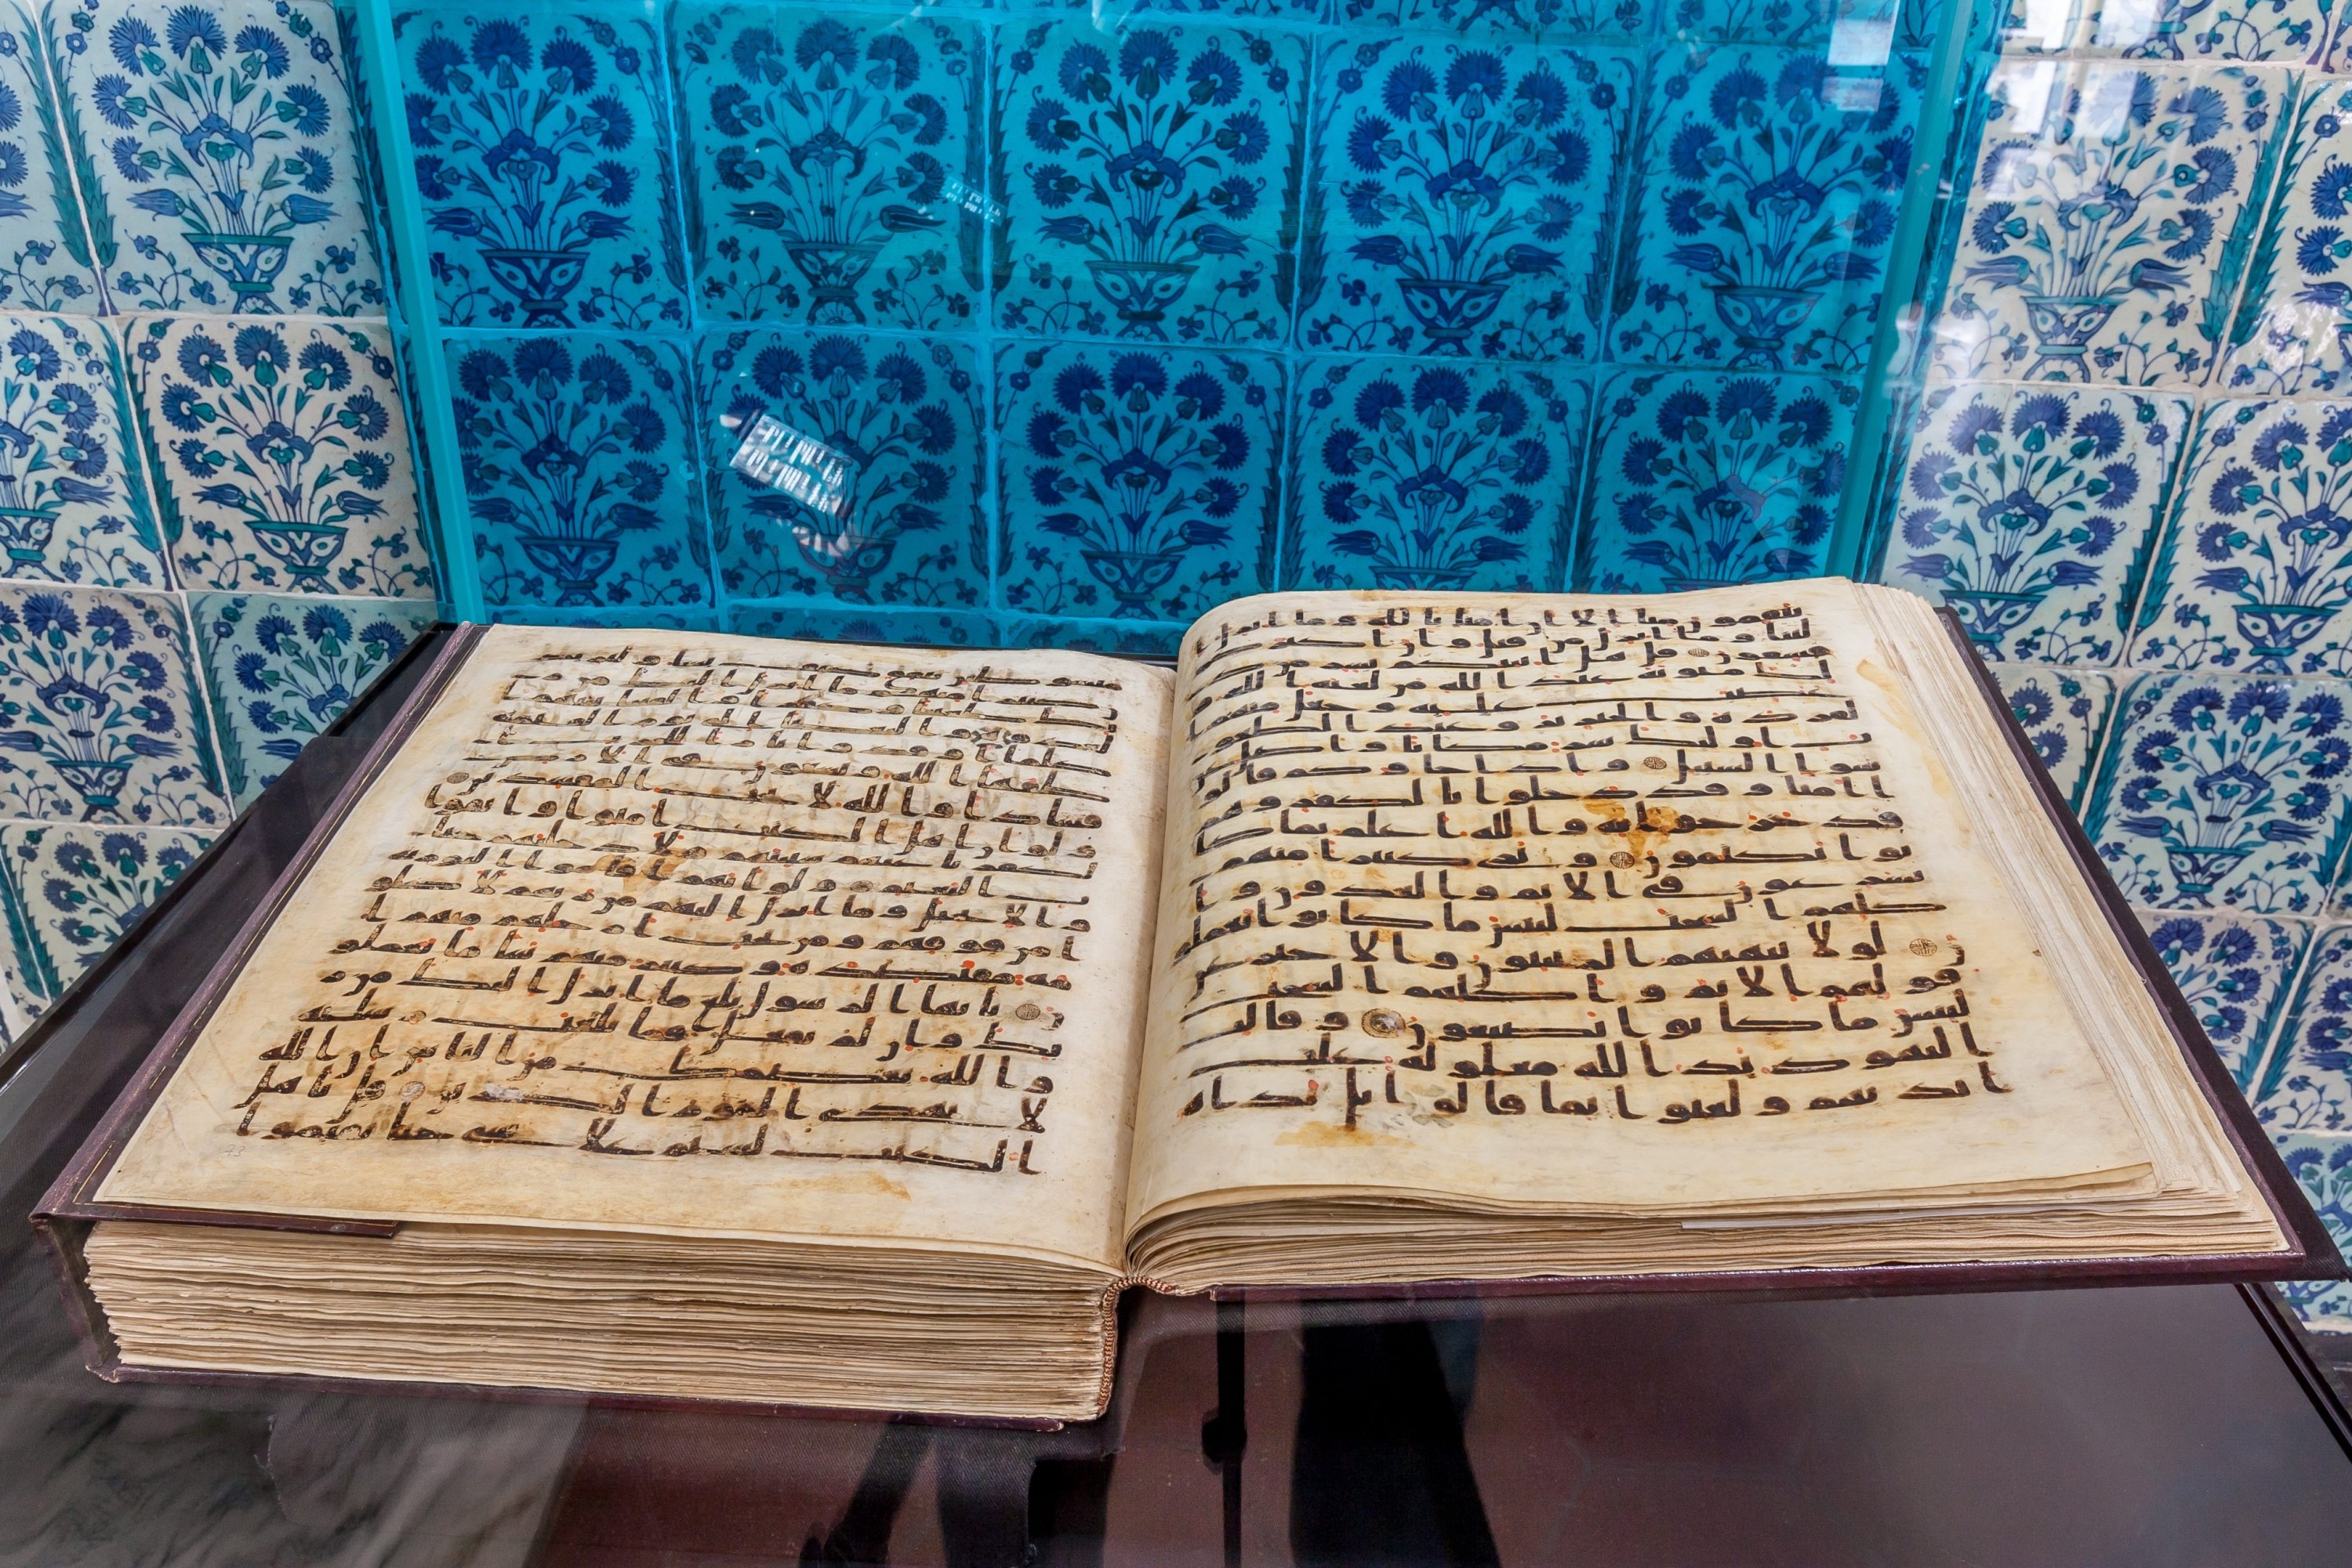 تنقمون منا الا ان امنا بالله وما انزل ا
لينا وما انزل من قبل وان اكثركم
فسقون قل هل انبيكم بشر من ذ
لك مثوبة عند الله من لعنه الله و
غضب عليه وجعل منهم ا
لقردة والخنزير وعبد الطغو
ت اوليك شر مكانا واضل عن
سوا السبيل واذا جاوكم قالو
ا امنا وقد دخلوا بالكفر وهم
قد خرجوا به والله اعلم بما كا
نوا يكتمون وترى كثيرا منهم
يسرعون في الاثم والعدون وا
كلهم السحت لبيس ما كانوا يعملو
ن لولا ينهيهم الربنيون والاحبر عن
قولهم الاثم واكلهم السحت
لبيس ما كانوا يصنعون وقالت
اليهود يد الله مغلولة غلت
ايديهم ولعنوا بما قالوا بل يداه
مبسوطتن ينفق كيف يشا وليزيد
ن كثيرا منهم ما انزل اليك من ر
بك طغينا وكفرا والقينا بينهم ا
لعدوة والبغضا الى يوم القيمة
كلما اوقدوا نارا للحرب ا
طفاها الله ويسعون في الارض
فسادا والله لا يحب المفسدين
ولو ان اهل الكتب امنوا واتقوا
لكفرنا عنهم سياتهم ولادخلنهم جنا
ت النعيم ولو انهم اقاموا التورية
والانجيل وما انزل اليهم من ربهم لاكلو
ا من فوقهم ومن تحت ارجلهم منهم ا
مة مقتصدة وكثير منهم سا ما يعملو
ن يايها الرسول بلغ ما انزل اليك من ر
بك وان لم تفعل فما بلغت رسلته
والله يعصمك من الناس ان الله
لا يهدي القوم الكفرين قل ياهل
الكتب لستم على شي حتى تقيموا ا